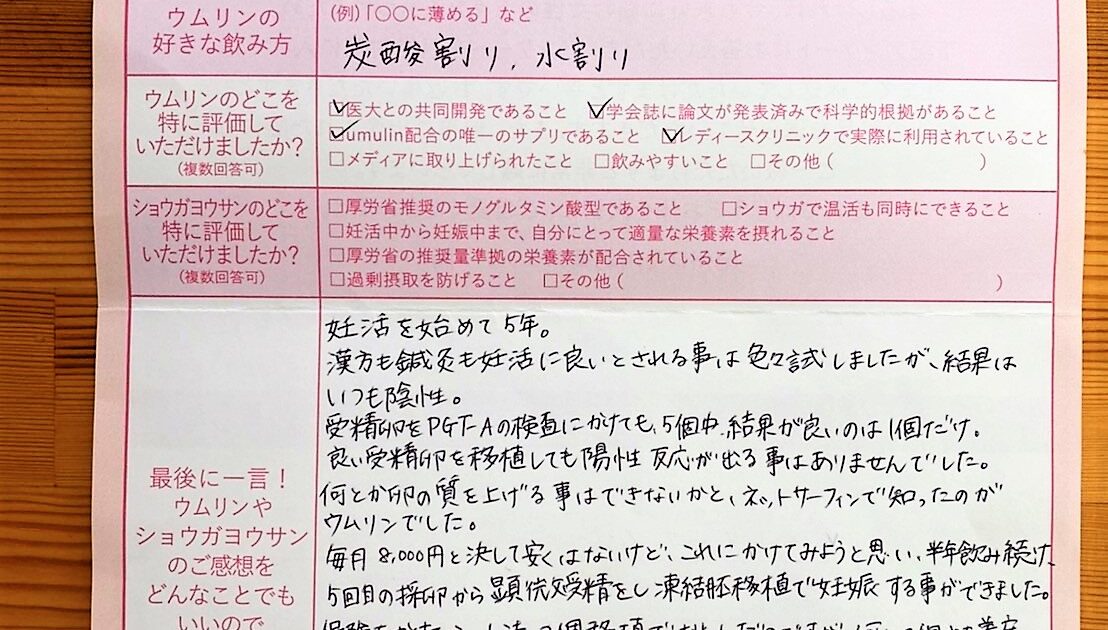 ウムリンの
好きな飲み方
(例)「〇〇に薄める」など
炭酸割り, 水割り
ウムリンのどこを
特に評価して
いただけましたか?
(複数回答可)
☑医大との共同開発であること ☑学会誌に論文が発表済みで科学的根拠があること
☑umulin配合の唯一のサプリであること ☑レディースクリニックで実際に利用されていること
□メディアに取り上げられたこと □飲みやすいこと □その他( )
ショウガヨウサンのどこを
特に評価して
いただけましたか?
(複数回答可)
□厚労省推奨のモノグルタミン酸型であること □ショウガで温活も同時にできること
□妊活中から妊娠中まで、自分にとって適量な栄養素を摂れること
□厚労省の推奨量準拠の栄養素が配合されていること
□過剰摂取を防げること □その他( )
最後に一言!
ウムリンや
ショウガヨウサン
のご感想を
どんなことでも
いいので
妊活を始めて5年。
漢方も鍼灸も妊活に良いとされる事は色々試しましたが、結果は
いつも陰性。
受精卵をPGT-Aの検査にかけても、5個中、結果が良いのは1個だけ。
良い受精卵を移植しても陽性反応が出る事はありませんでした。
何とか卵の質を上げる事はできないかと、ネットサーフィンで知ったのが
ウムリンでした。
毎月8,000円と決して安くはないけど、これにかけてみようと思い、半年飲み続け、
5回目の採卵から顕微受精をし凍結胚移植で妊娠する事ができました。